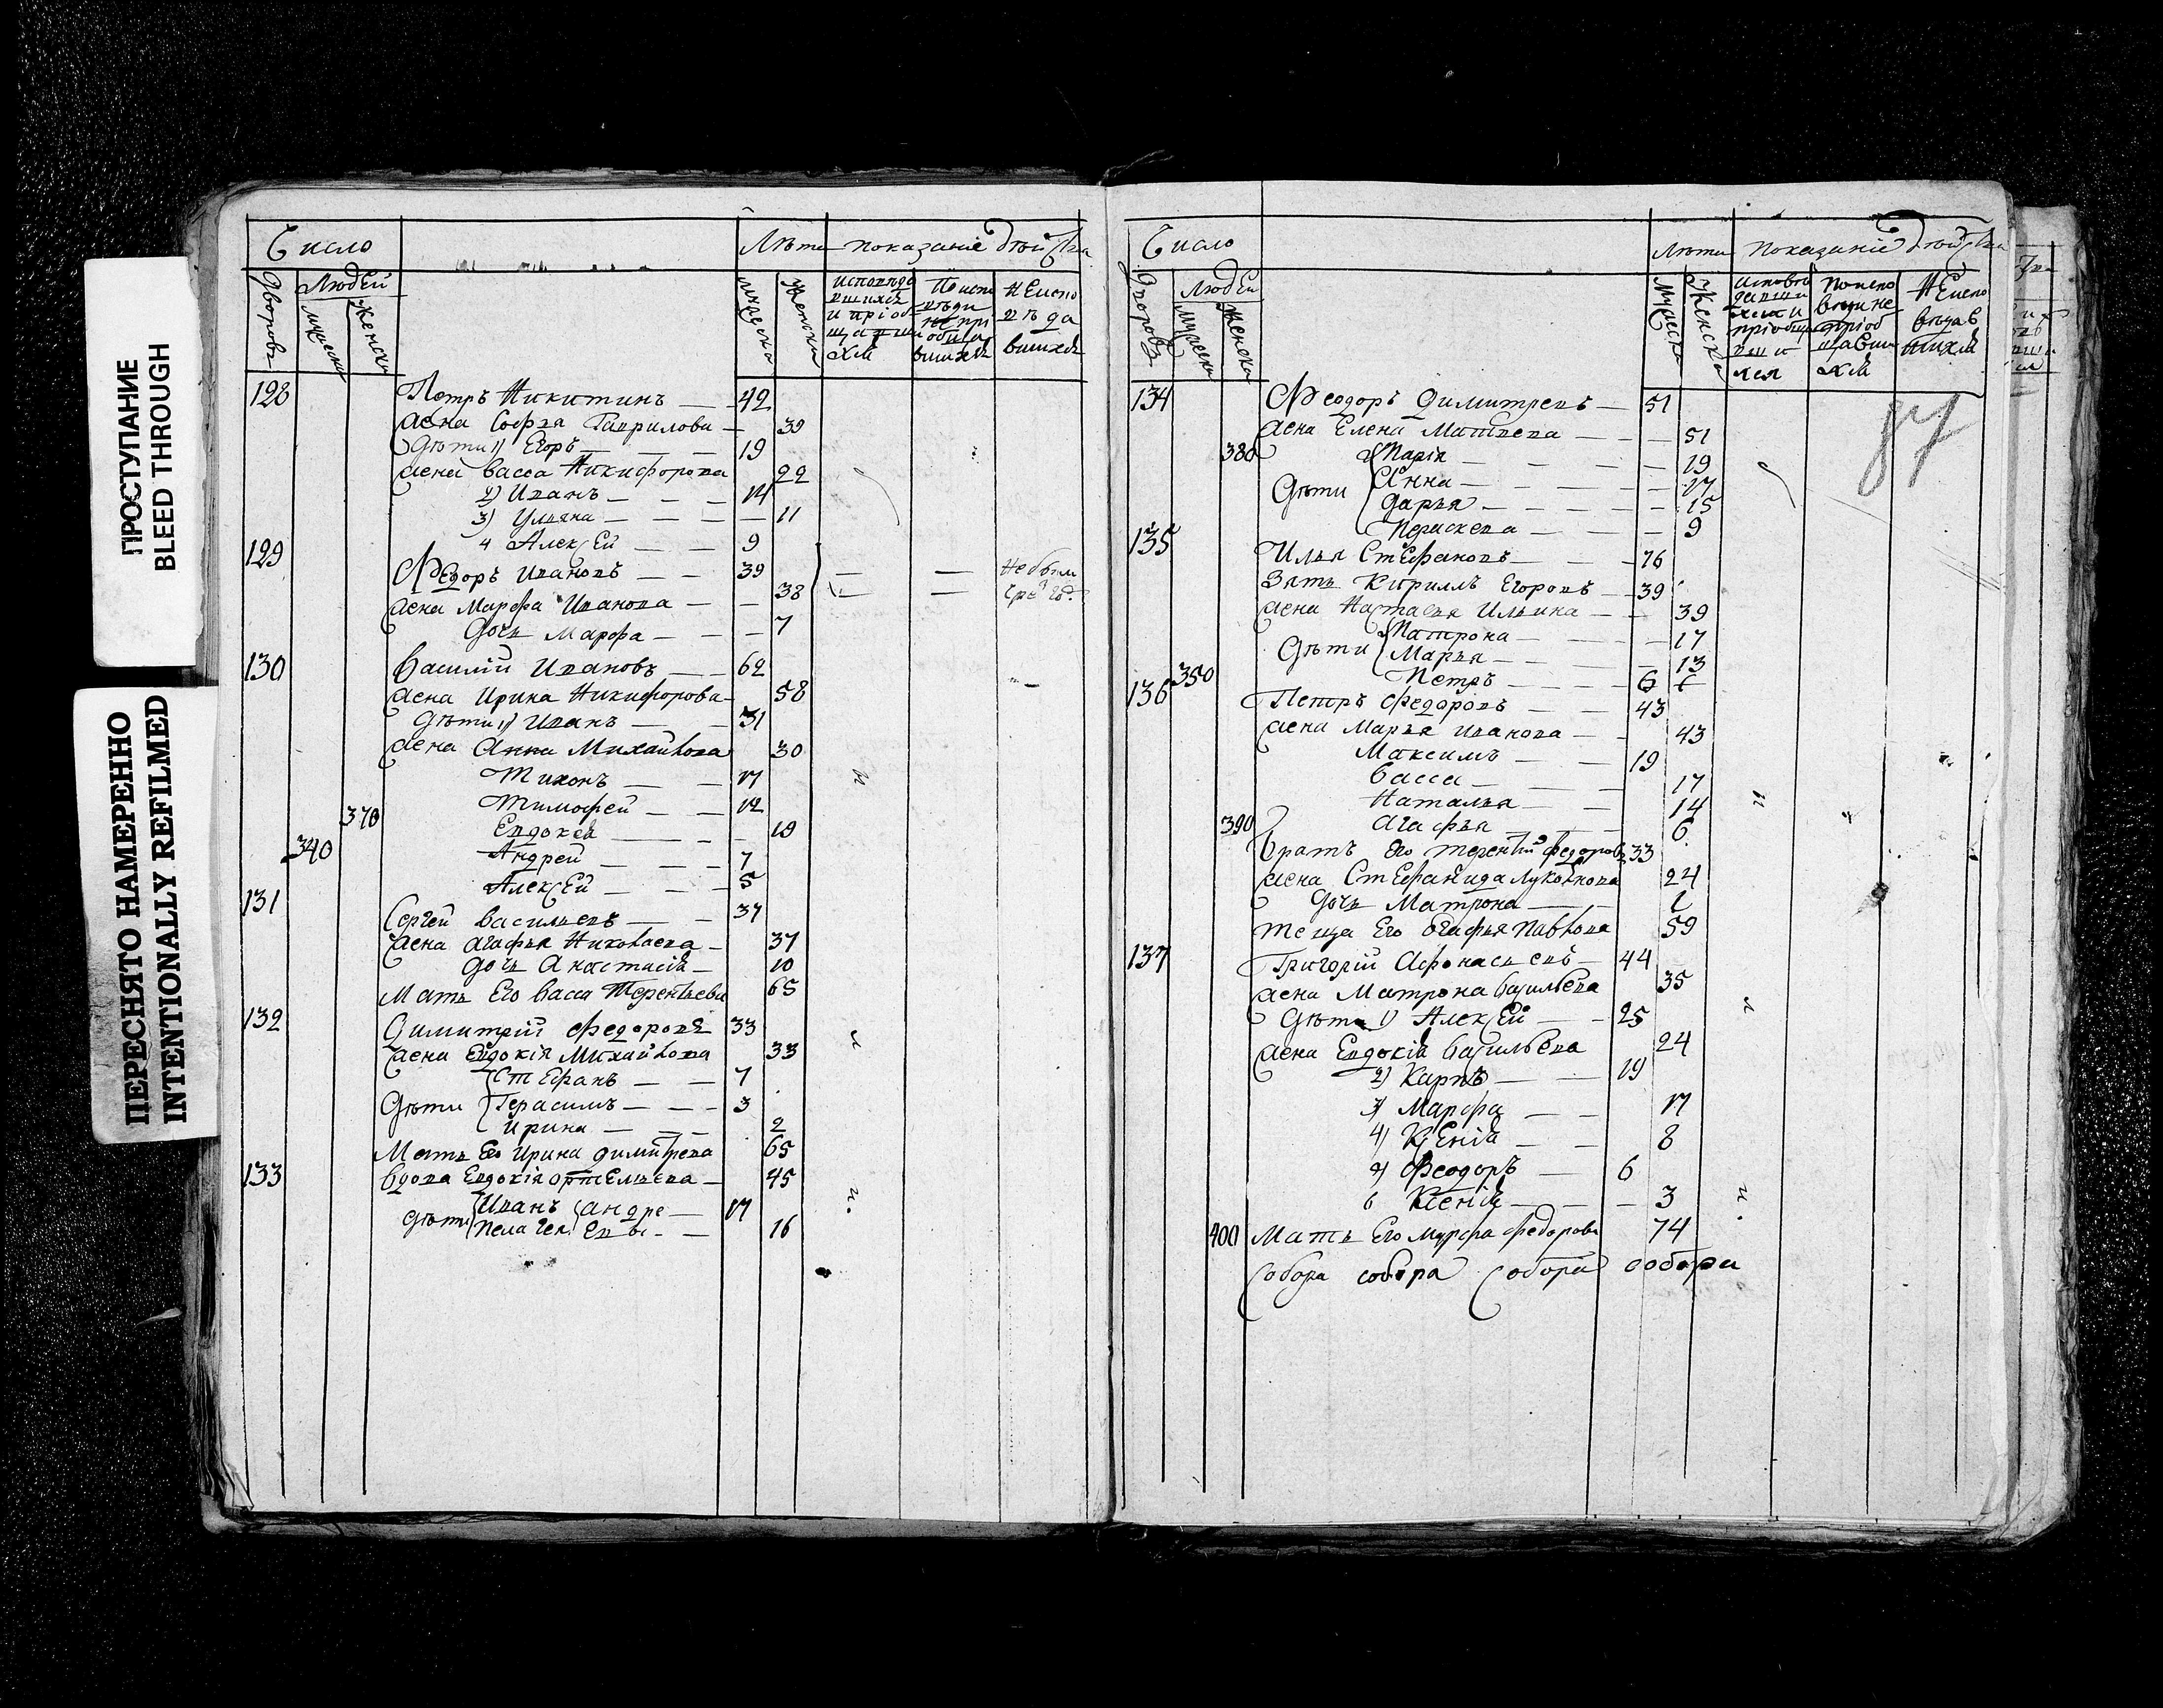 ПРОСТУПАНИЕ
BLEED THROUGH
ПЕРЕСНЯТО НАМЕРЕННО
INTENTIONALLY REFILMED
Число Лѣта показаніе дѣйства
Дворовъ Людей мужеска женска мужеска женска
исповѣдавшихся и пріобщавшихся
не исповѣдавшихся
128 Петръ Никитинъ 42
жена Софья Гаврилова 39
Дѣти 1) Егоръ 19
жена Васса Никифорова 22
2) Иванъ 14
3) Ульяна 11
4 Алексей 9
129 Федоръ Ивановъ 39 Не были
жена Марфа Иванова 38
Дочь Марфа 7
130 Василій Ивановъ 62
жена Ирина Никифорова 58
Дѣти 1) Иванъ 31
жена Анна Михайлова 30
Тихонъ 17
Тимофей 12
370 Евдокея 10
340 Андрей 7
Алексей 5
131 Сергей Васильевъ 37
жена Агафья Николаева 37
Дочь Анастасія 10
Мать Его Васса Терентьева 65
132 Димитрій Федоровъ 33
жена Евдокія Михайлова 33
Стефанъ 7
Дѣти Герасимъ 3
Ирина 2
Мать Его Ирина Димитрева 65
133 Вдова Евдокія Артемьева 45
Дѣти Иванъ Андре 17
Пелаген 16
Число Лѣта Показаніе дѣйства
Дворовъ Людей мужеска женска мужеска Женска
87
134 Феодоръ Димитревъ 51
жена Елена Матвева 51
380 Марія 19
Дѣти Анна 17
Дарья 15
Пераскева 9
135 Илья Стефановъ 76
Зять Кирилъ Егоровъ 39
жена Настасья Ильина 39
Матрона 17
Дѣти Марья 13
350 Петръ 6
136 Петръ Федоровъ 43
жена Марья Иванова 43
Максимъ 19
Васса 17
Наталья 14
390 Агафья 6
Братъ Его Терентій Федоровъ 33
жена Стефанида Луконова 24
Дочь Матрона
Теща Его Агафья Павлова 59
137 Григорій Афонасьевъ 44
жена Матрона Васильева 35
Дѣти 1) Алексей 25
жена Евдокія Васильева 24
2) Карпъ 19
3) Марфа 17
4) Ксенія 8
Феодоръ 6
6 Ксенія 3
400 Мать Его Марфа Федорова 74
Собора собора собора собора